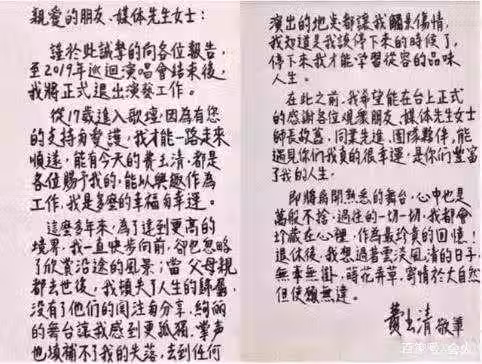 親愛的朋友、媒体先生女士:
謹於此誠摯的向各位報告,
至2019年巡迴演唱會結束後,
我將正式退出演藝工作。
從17歲進入歌壇,因為有您
的支持与愛護,我才能一路走來
順遂,能有今天的費玉清,都是
各位賜予我的,能以興趣作為
工作,我是多麼的幸福与幸運。
這麼多年來,為了達到更高的
境界,我一直快步向前,卻也忽略
了欣賞沿途的風景;當父母親
都去世後,我頓失了人生的歸屬,
沒有了他們的関注与分享,絢麗
的舞台讓我感到更孤獨,掌聲
也填補不了我的失落,去到任何
演出的地点都讓我触景傷情,
我知道是我該停下來的時候了,
停下來我才能学習從容的品味
人生。
在此之前,我希望能在台上正式
的感謝各位觀衆朋友、媒体先生女士
師長故舊、同業先進、團隊夥伴,能
遇見你們我真的很幸運,是你們豐富
了我的人生。
即將离開熟悉的舞台,心中也是
萬般不捨,過往的一切一切,我都會
珍藏在心裡,作為最珍貴的回憶!
退休後,我想過著雲淡風清的日子,
無牽無掛,蒔花弄草,寄情於大自然
但使願無違。
費玉清 敬筆
百家号